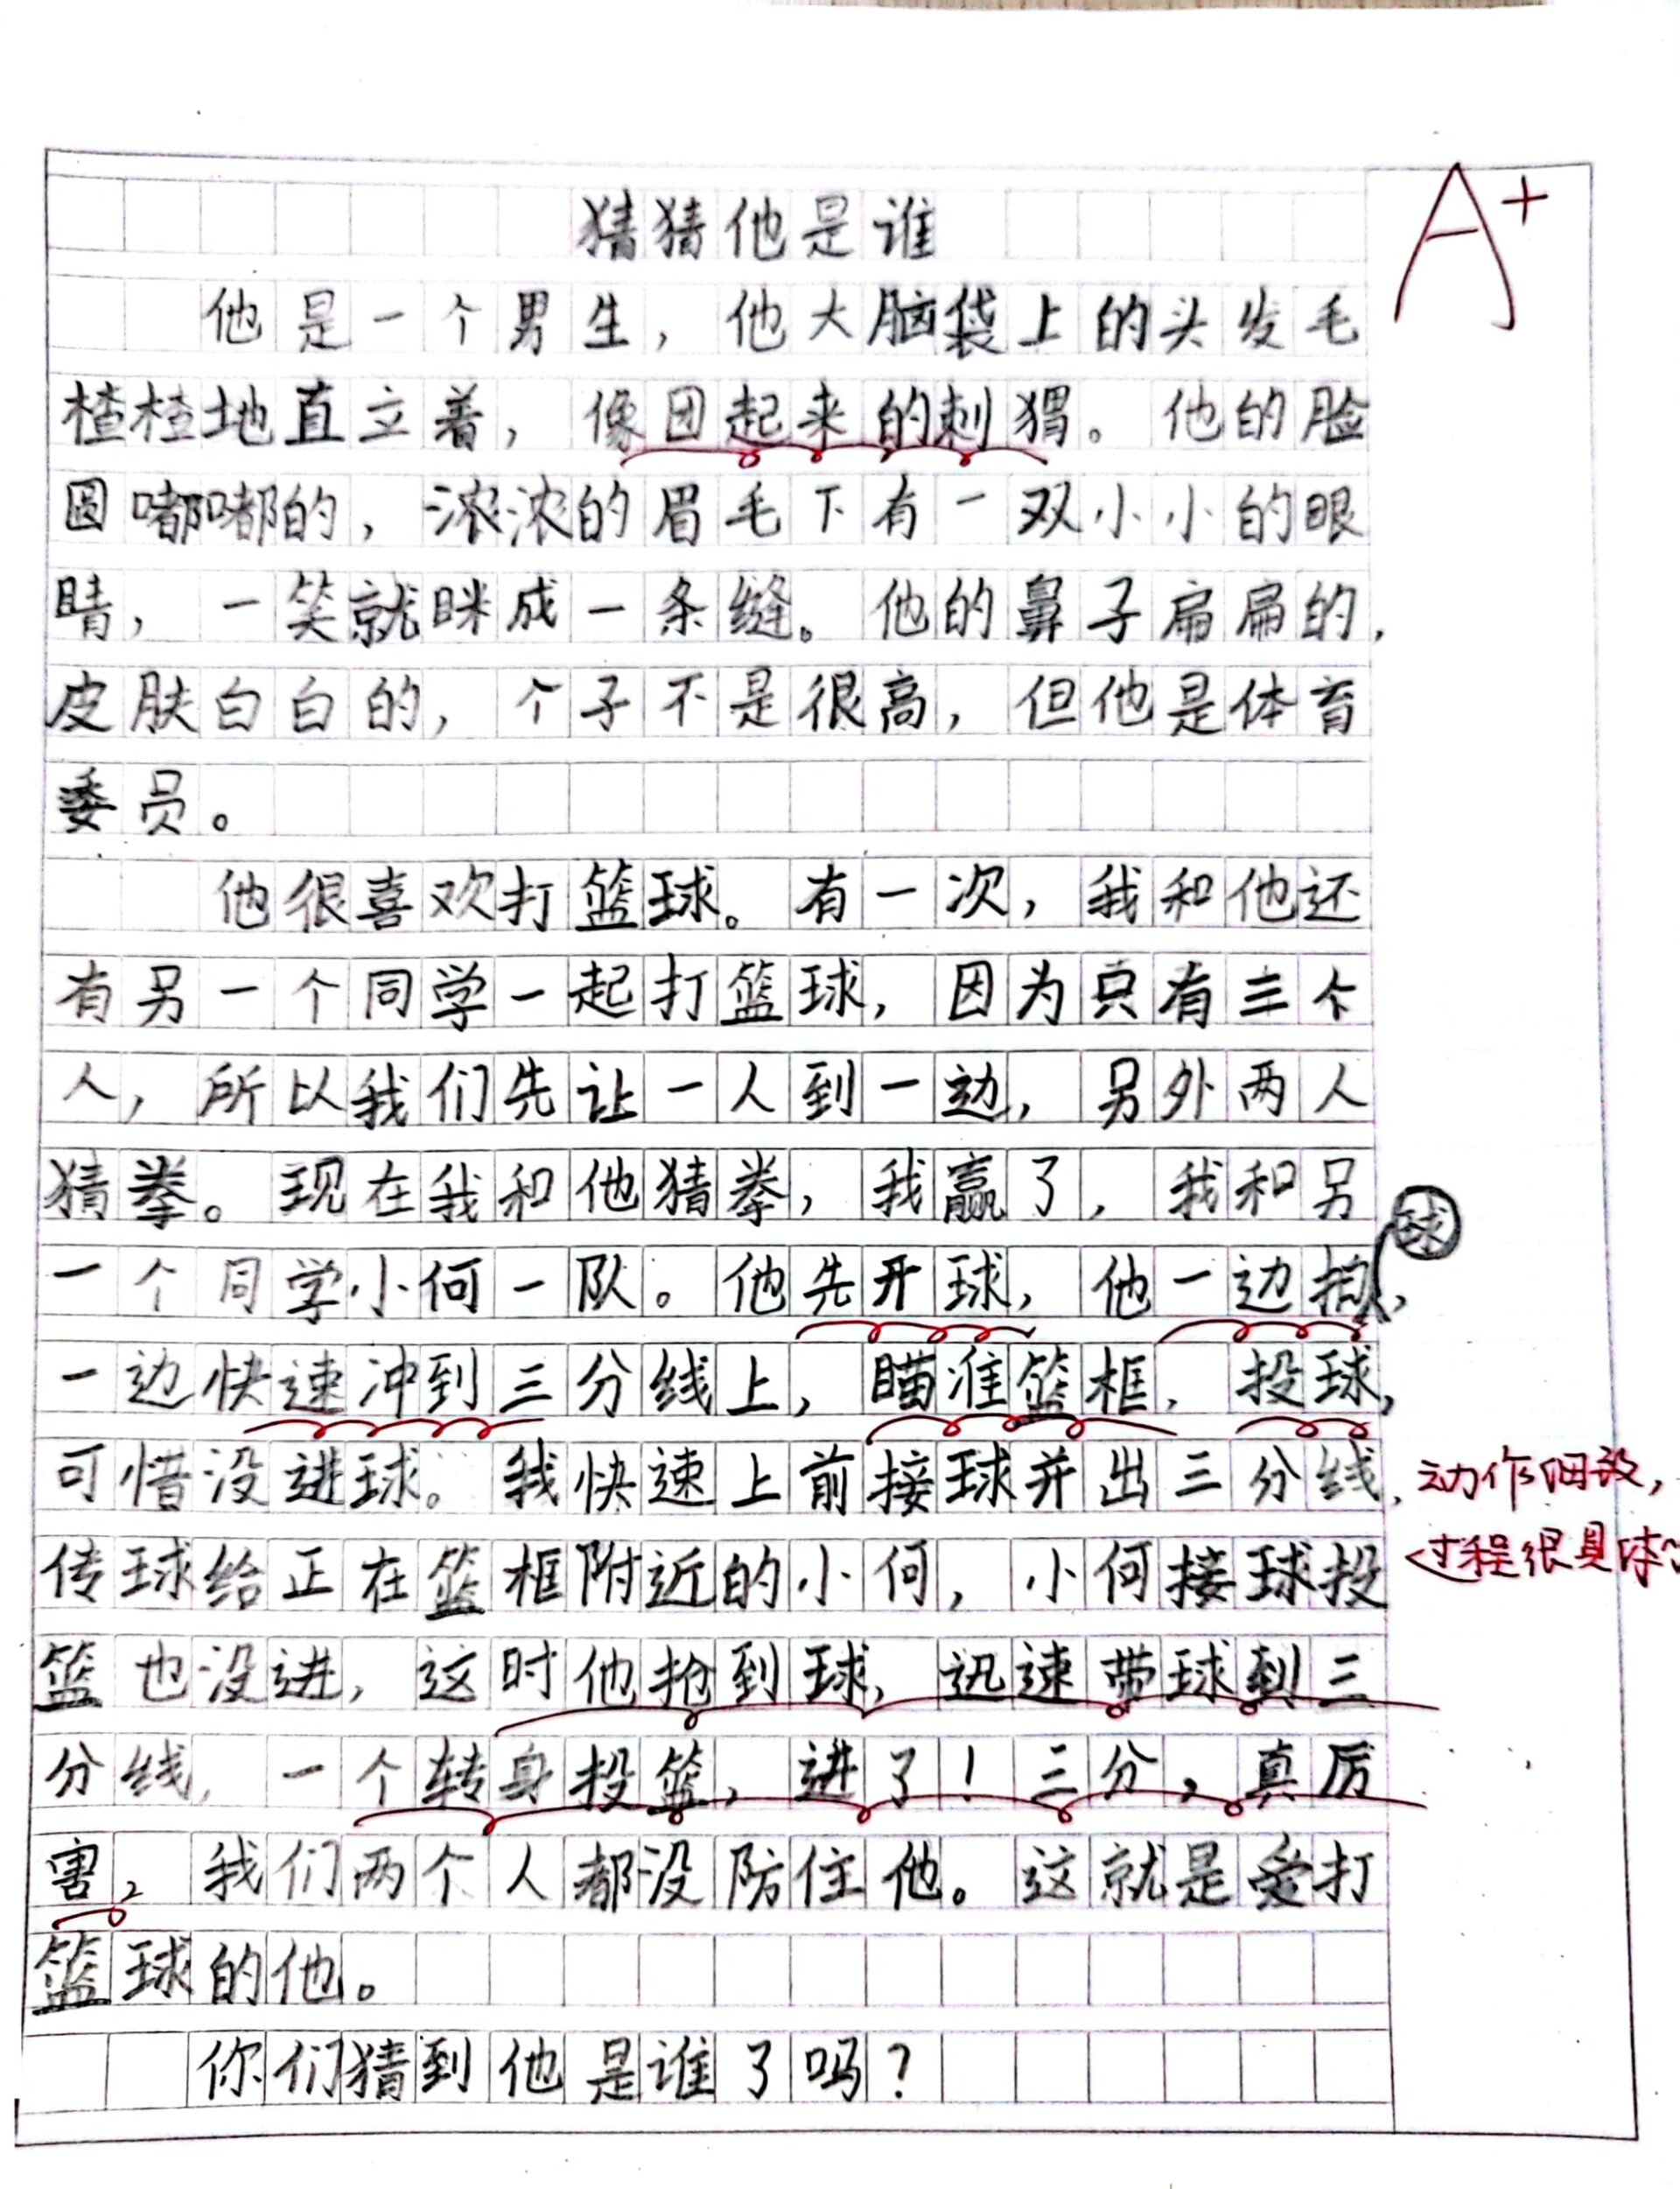 猜猜他是谁
A+
他是一个男生，他大脑袋上的头发毛
楂楂地直立着，像团起来的刺猬。他的脸
圆嘟嘟的，浓浓的眉毛下有一双小小的眼
睛，一笑就眯成一条缝。他的鼻子扁扁的，
皮肤白白的，个子不是很高，但他是体育
委员。
他很喜欢打篮球。有一次，我和他还
有另一个同学一起打篮球，因为只有三个
人，所以我们先让一人到一边，另外两人
猜拳。现在我和他猜拳，我赢了，我和另
一个同学小何一队。他先开球，他一边拍球，
一边快速冲到三分线上，瞄准篮框，投球，
可惜没进球。我快速上前接球并出三分线，
动作细致，
传球给正在篮框附近的小何，小何接球投
过程很具体
篮也没进，这时他抢到球，迅速带球到三
分线，一个转身投篮，进了！三分，真厉
害，我们两个人都没防住他。这就是爱打
篮球的他。
你们猜到他是谁了吗？